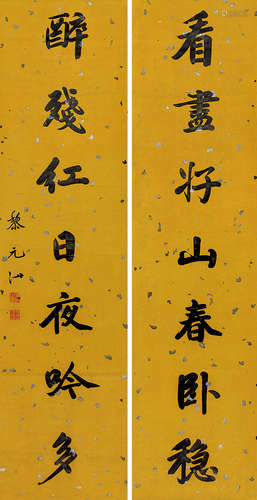 看盡好山春卧穩
醉殘紅日夜吟多
黎元洪